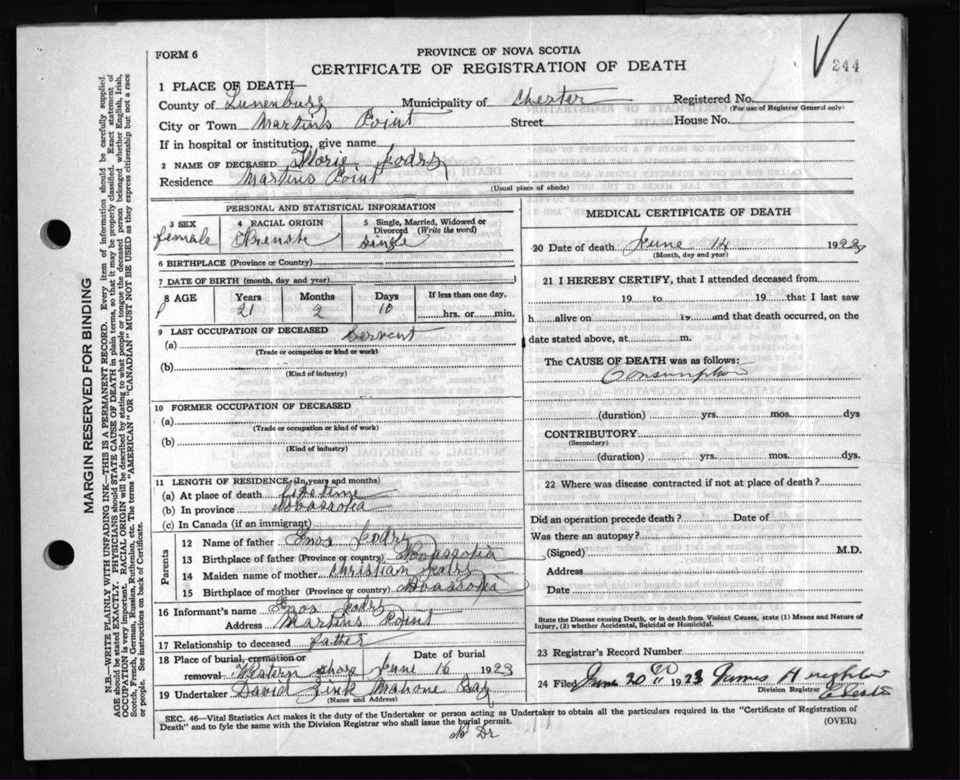 PROVINCE OF NOVA SCOTIA
FORM 6
CERTIFICATE OF REGISTRATION OF DEATH
244
1 PLACE OF DEATH—
County of Lunenburg Municipality of Chester Registered No.
(For use of Registrar General only)
City or Town Martins Point Street House No.
If in hospital or institution, give name
2 NAME OF DECEASED Florie
Residence Martins Point
(Usual place of abode)
PERSONAL AND STATISTICAL INFORMATION
3 SEX 4 RACIAL ORIGIN 5 Single, Married, Widowed or Divorced (Write the word)
female single
6 BIRTHPLACE (Province or Country)
7 DATE OF BIRTH (month, day and year)
8 AGE Years Months Days If less than one day,
21 2 10 hrs. or min.
9 LAST OCCUPATION OF DECEASED
(a) Servent
(Trade or occupation or kind or work)
(b)
(Kind of industry)
10 FORMER OCCUPATION OF DECEASED
(a)
(Trade or occupation or kind or work)
(b)
(Kind of industry)
11 LENGTH OF RESIDENCE (In years and months)
(a) At place of death life time
(b) In province
(c) In Canada (if an immigrant)
Parents
12 Name of father Enos
13 Birthplace of father (Province or country)
14 Maiden name of mother Christian
15 Birthplace of mother (Province or country)
16 Informant's name Enos
Address Martins Point
17 Relationship to deceased father
18 Place of burial, cremation or removal Western Shore Date of burial June 16 1923
19 Undertaker David Zink Mahone Bay
(Name and Address)
MEDICAL CERTIFICATE OF DEATH
20 Date of death June 14 1923
(Month, day and year)
21 I HEREBY CERTIFY, that I attended deceased from
19 to 19 that I last saw
h alive on 19 and that death occurred, on the
date stated above, at m.
The CAUSE OF DEATH was as follows:
Consumption
(duration) yrs. mos. dys
CONTRIBUTORY
(Secondary)
(duration) yrs. mos. dys
22 Where was disease contracted if not at place of death?
Did an operation precede death? Date of
Was there an autopsy?
(Signed) M.D.
Address
Date
State the Disease causing Death, or in death from Violent Causes, state (1) Means and Nature of Injury, (2) whether Accidental, Suicidal or Homicidal.
23 Registrar's Record Number
24 Filed June 20 1923 James H
Division Registrar
SEC. 46—Vital Statistics Act makes it the duty of the Undertaker or person acting as Undertaker to obtain all the particulars required in the "Certificate of Registration of
Death" and to fyle the same with the Division Registrar who shall issue the burial permit. (OVER)
No Dr
MARGIN RESERVED FOR BINDING
N.B.—WRITE PLAINLY WITH UNFADING INK—THIS IS A PERMANENT RECORD. Every item of information should be carefully supplied.
AGE should be stated EXACTLY. PHYSICIANS should STATE CAUSE OF DEATH in plain terms, so that it may be properly classified. Exact statement of
OCCUPATION is very important. RACIAL ORIGIN will be described by stating to what people or tongue the deceased person belonged, whether English, Irish,
Scotch, French, German, Russian, Ruthenian, etc. The terms "AMERICAN" OR "CANADIAN" MUST NOT BE USED as they express citizenship but not a race
or people. See instructions on back of Certificate.